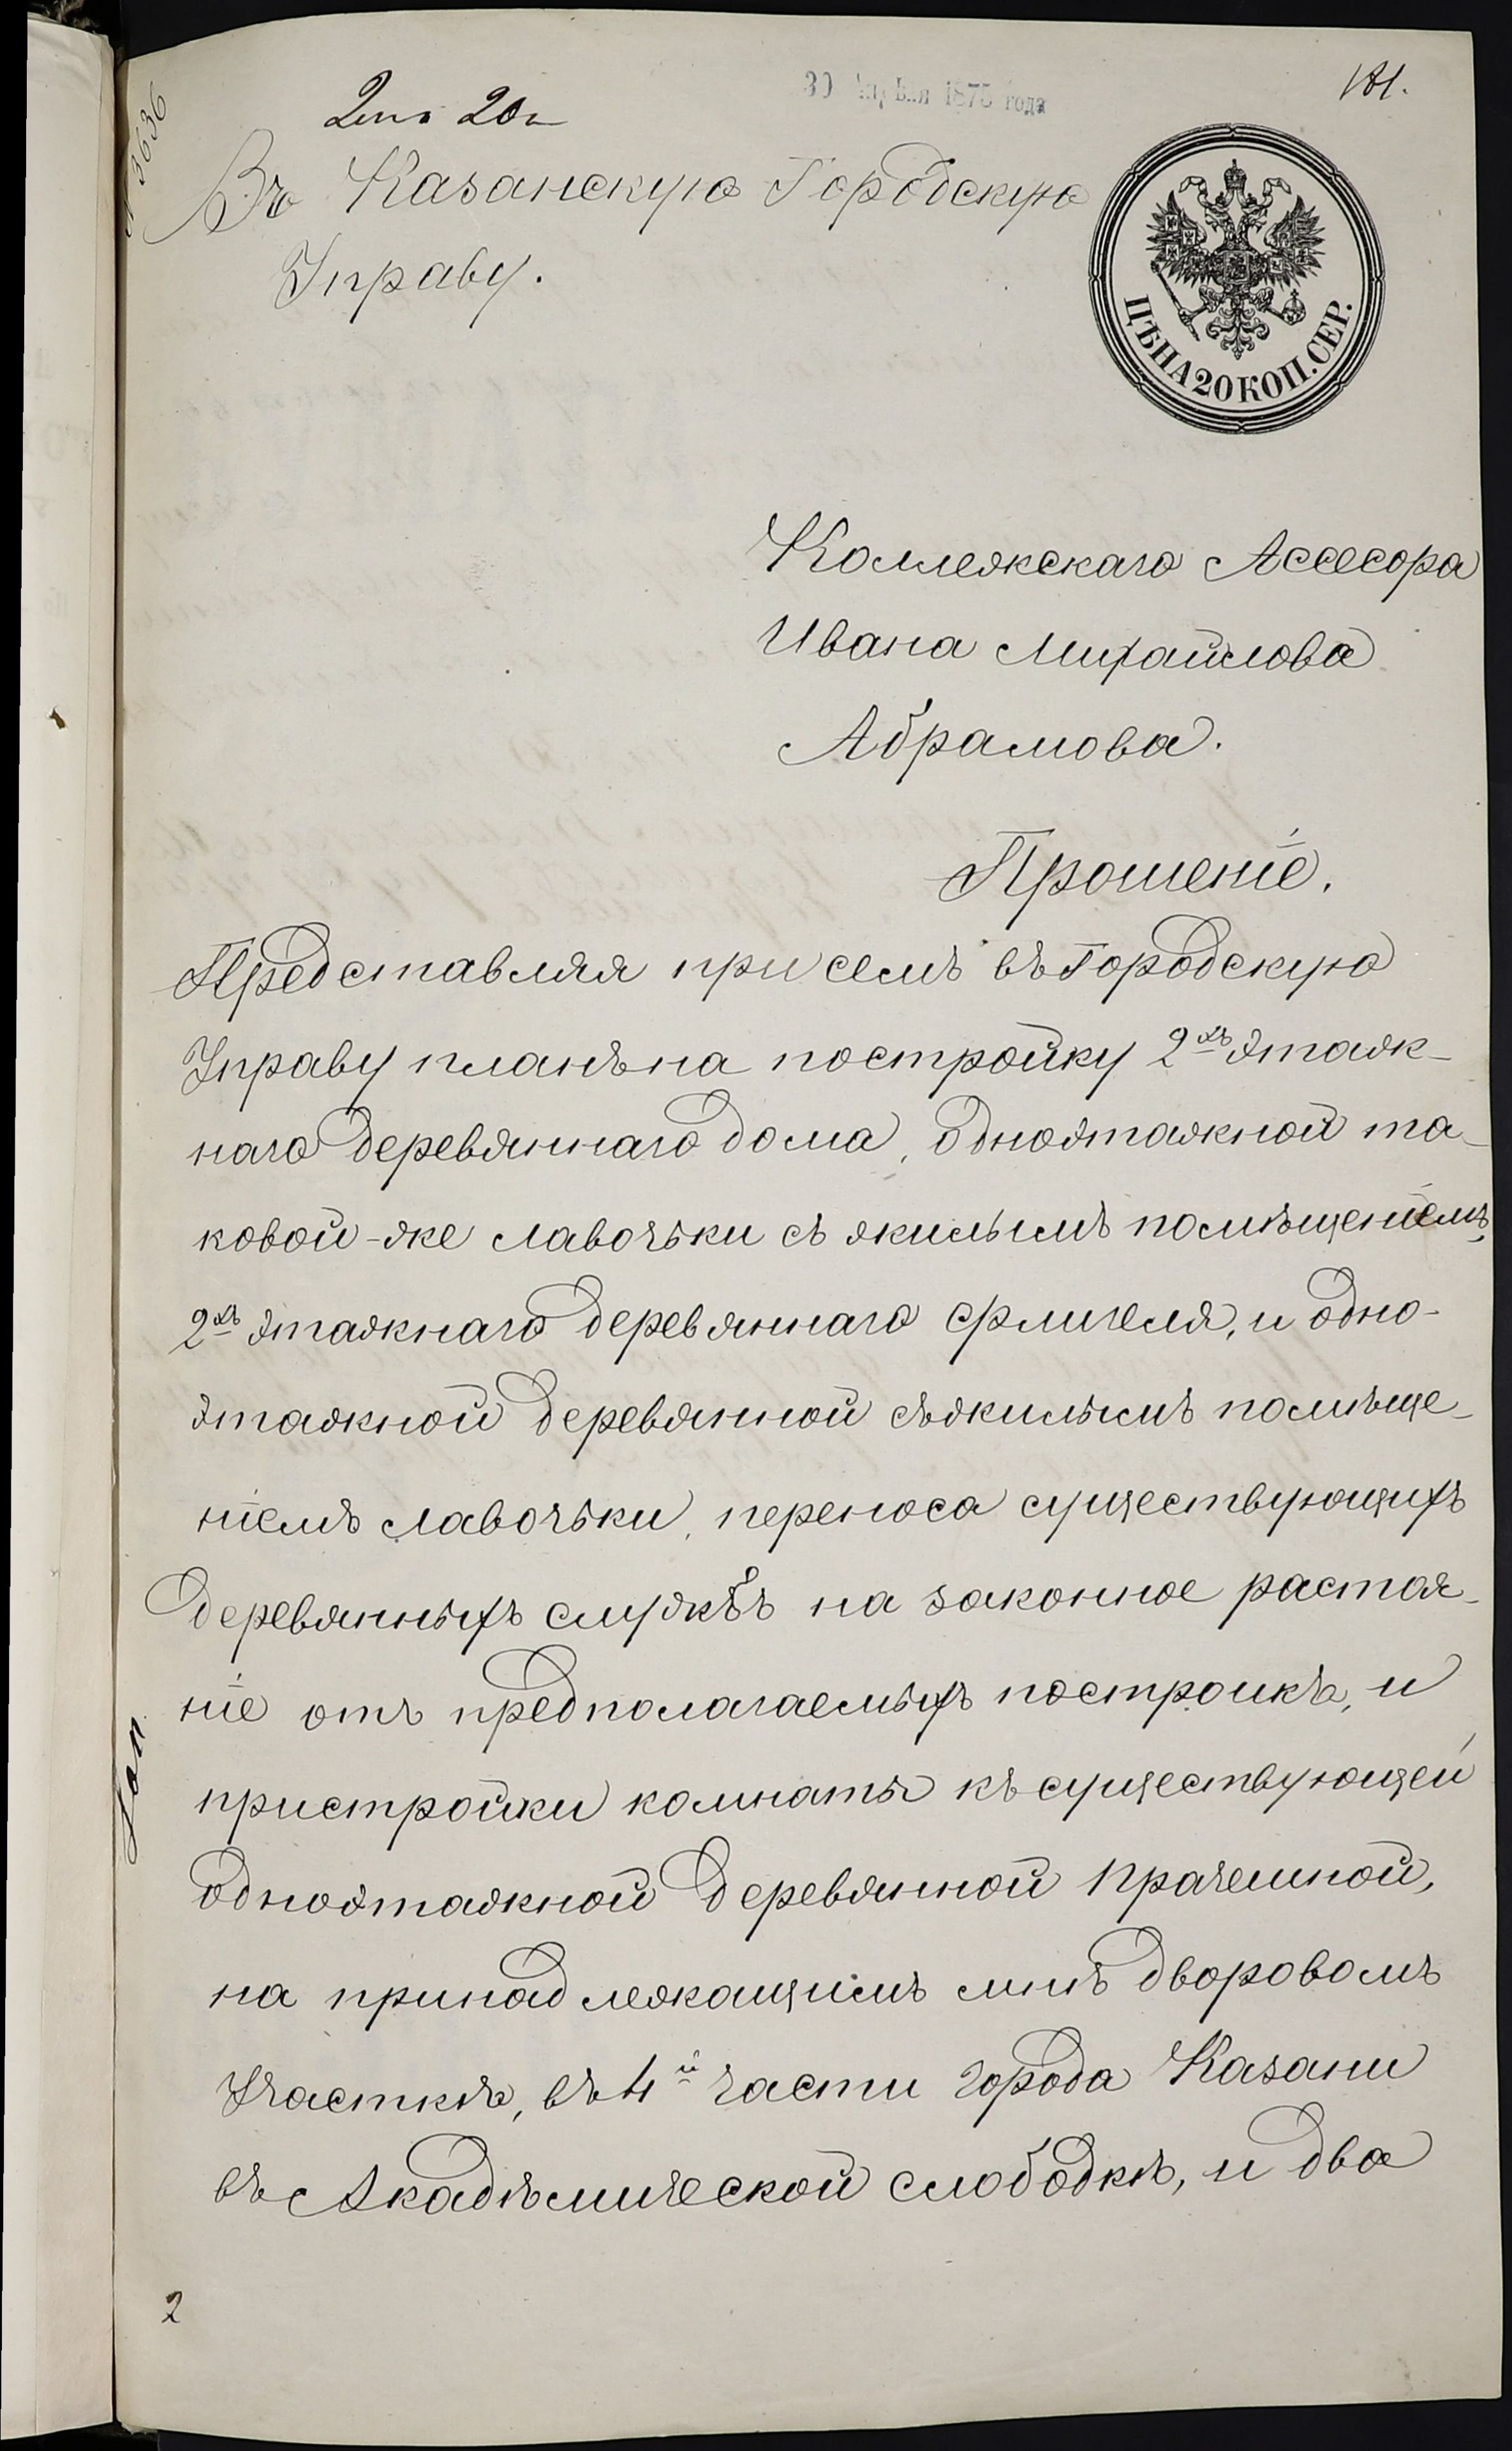 181.
года
3636
Въ Казанскую Городскую
Управу.
ЦѢНА 20 КОП. СЕР.
Коллежскаго Ассесора
Ивана Михайлова
Абрамова.
Прошеніе.
Представляя при семъ въ Городскую
Управу планъ на постройку 2хъ этаж-
наго деревяннаго дома, одноэтажной та-
ковой-же лавочьки съ жилымъ помѣщеніемъ,
2хъ этажнаго деревяннаго флигеля, и одно-
этажной деревянной съ жилымъ помѣще-
ніемъ лавочьки, переноса существующихъ
деревянныхъ службъ на законное растоя-
ніе отъ предполагаемыхъ построикъ, и
пристройки комнаты къ существующей
одноэтажной деревянной прачешной,
на принадлежащимъ мнѣ дворовомъ
Участкѣ, въ 4й части города Казани
въ Акадѣмической слободкѣ, и два
2